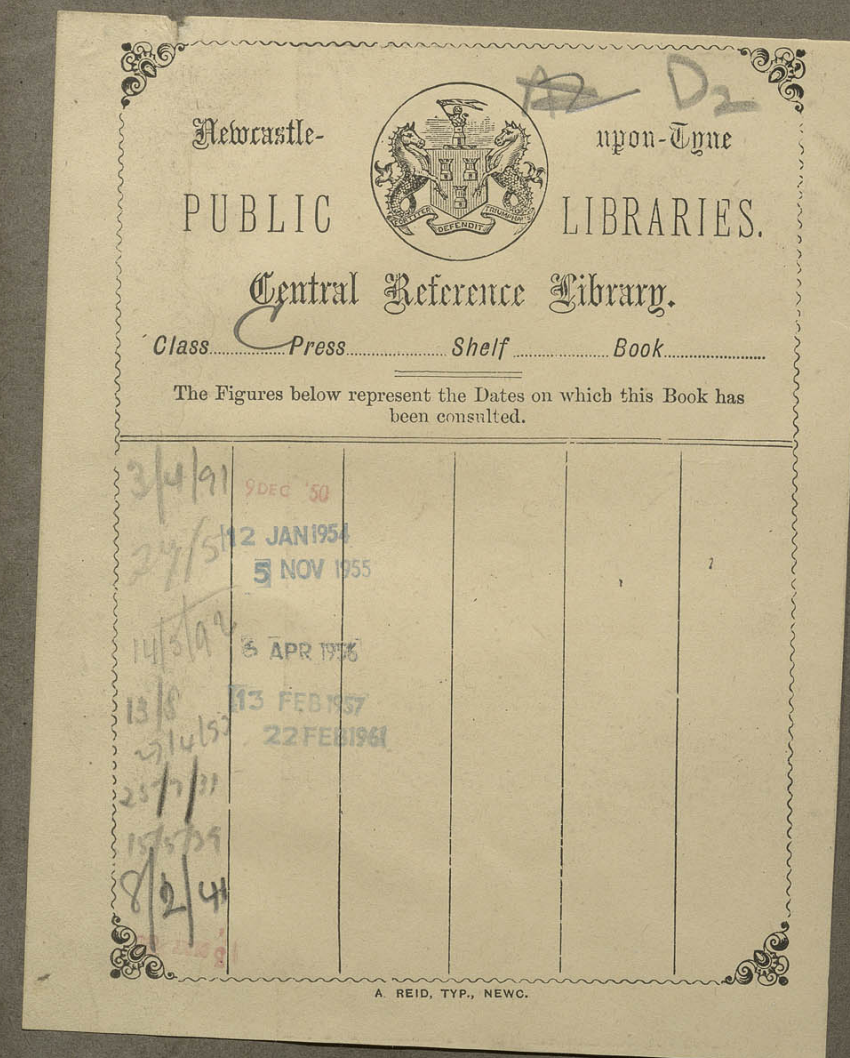 D2
Newcastle- upon-Tyne
PUBLIC LIBRARIES.
FORTITER DEFENDIT TRIUMPHANS
Central Reference Library.
C
Class.......... Press.......... Shelf .......... Book..........
The Figures below represent the Dates on which this Book has
been consulted.
3/4/91
14/5/92
13/8
25/7/31
15/5/39
8/2/41
9 DEC '50
12 JAN 1954
5 NOV 1955
6 APR 1956
13 FEB 1957
22 FEB 1961
A. REID, TYP., NEWC.